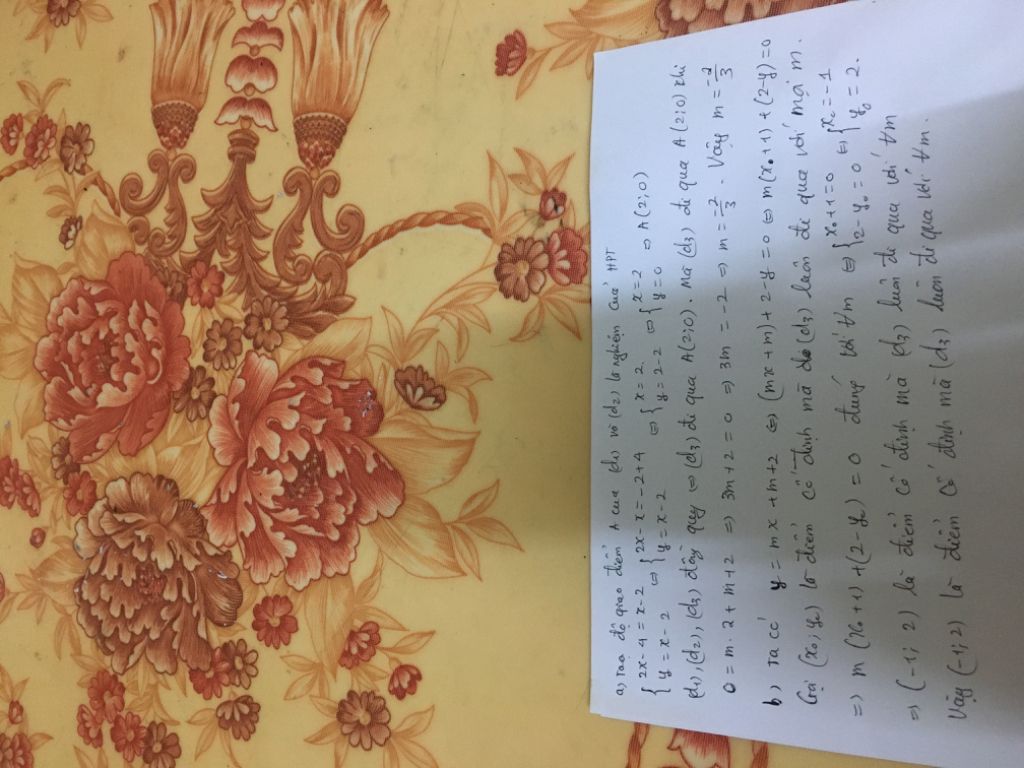 a) Tọa độ giao điểm A của (d1) và (d2) là nghiệm của HPT
{ 2x-4 = x-2 ⇔ { 2x-x = -2+4 ⇔ { x = 2 ⇔ { x = 2 ⇒ A(2;0)
y = x-2 y = x-2 y = 2-2 y = 0
(d1), (d2), (d3) đồng quy ⇔ (d3) đi qua A(2;0). Mà (d3) đi qua A(2;0) khi
0 = m.2 + m+2 ⇒ 3m+2 = 0 ⇒ 3m = -2 ⇒ m = -2/3. Vậy m = -2/3
b) Ta có y = mx + m+2 ⇔ (mx+m) + 2-y = 0 ⇔ m(x+1) + (2-y) = 0
Gọi (x0; y0) là điểm cố định mà (d3) luôn đi qua với mọi m.
⇒ m(x0+1) + (2-y0) = 0 đúng với ∀m ⇔ { x0+1 = 0 ⇔ { x0 = -1
2-y0 = 0 y0 = 2.
⇒ (-1; 2) là điểm cố định mà (d3) luôn đi qua với ∀m
Vậy (-1; 2) là điểm cố định mà (d3) luôn đi qua với ∀m.